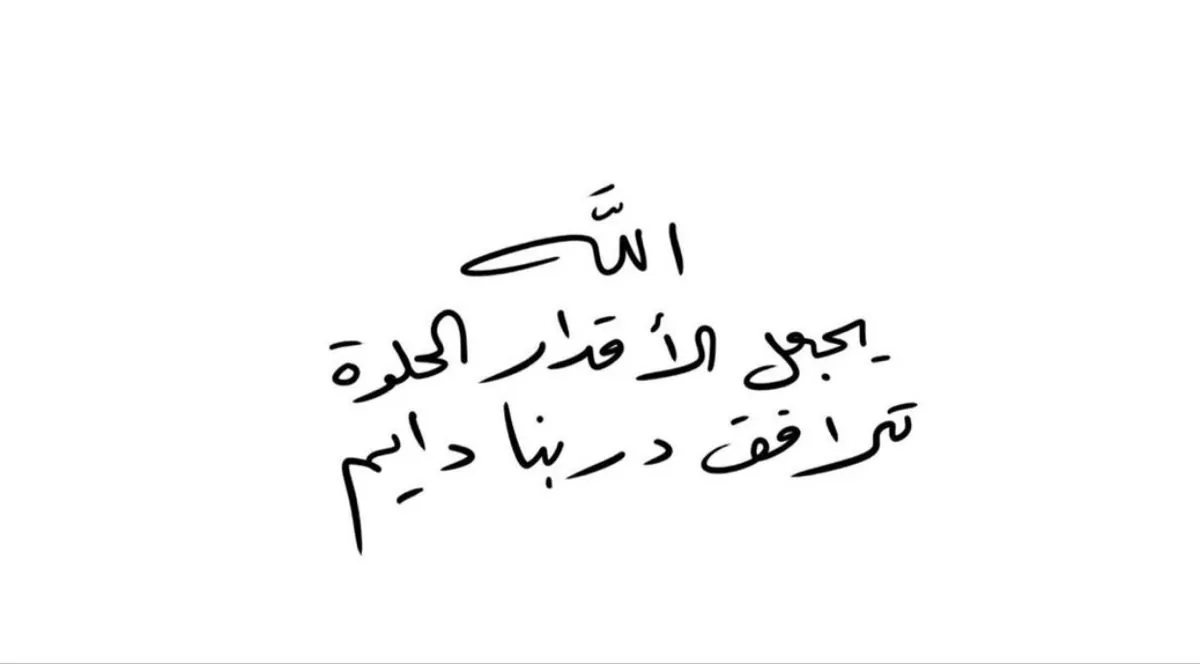 اللَّه
يجعل الأقدار الحلوة
ترافق دربنا دايم